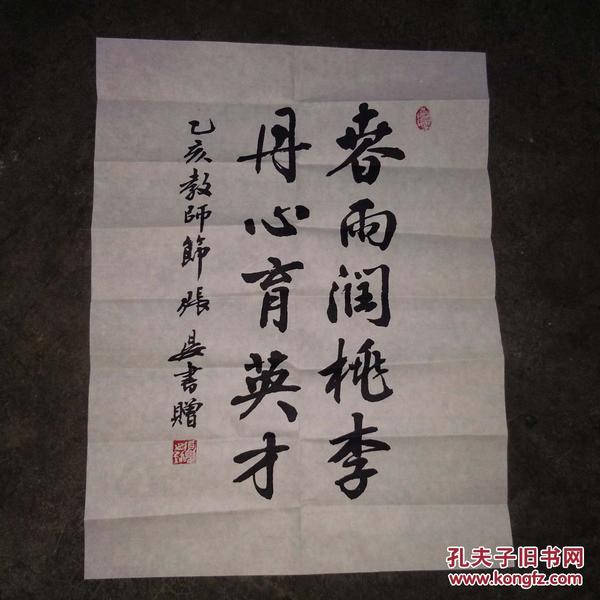 春雨润桃李
丹心育英才
乙亥教师節 張 書贈
孔夫子旧书网
www.kongfz.com